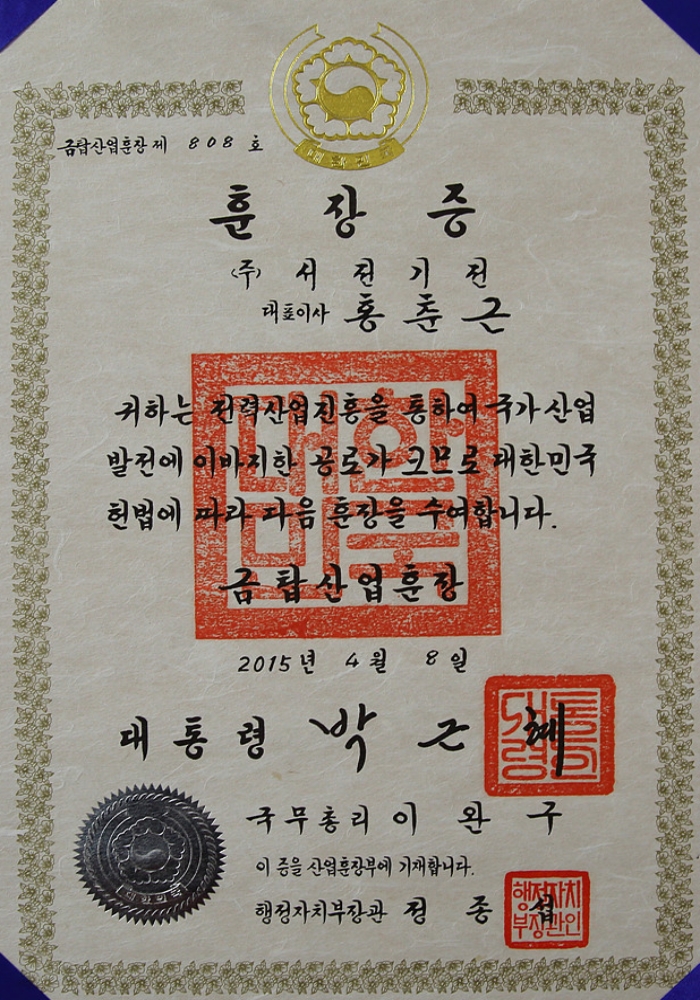 대한민국
금탑산업훈장 제 808 호
훈장증
(주) 서전기전
대표이사 홍춘근
귀하는 전력산업진흥을 통하여 국가산업
발전에 이바지한 공로가 크므로 대한민국
헌법에 따라 다음 훈장을 수여합니다.
대한민국
금탑산업훈장
2015년 4월 8일
대통령 박근혜
국무총리 이완구
이 증을 산업훈장부에 기재합니다.
행정자치부장관 정종섭
행정자치
부장관인